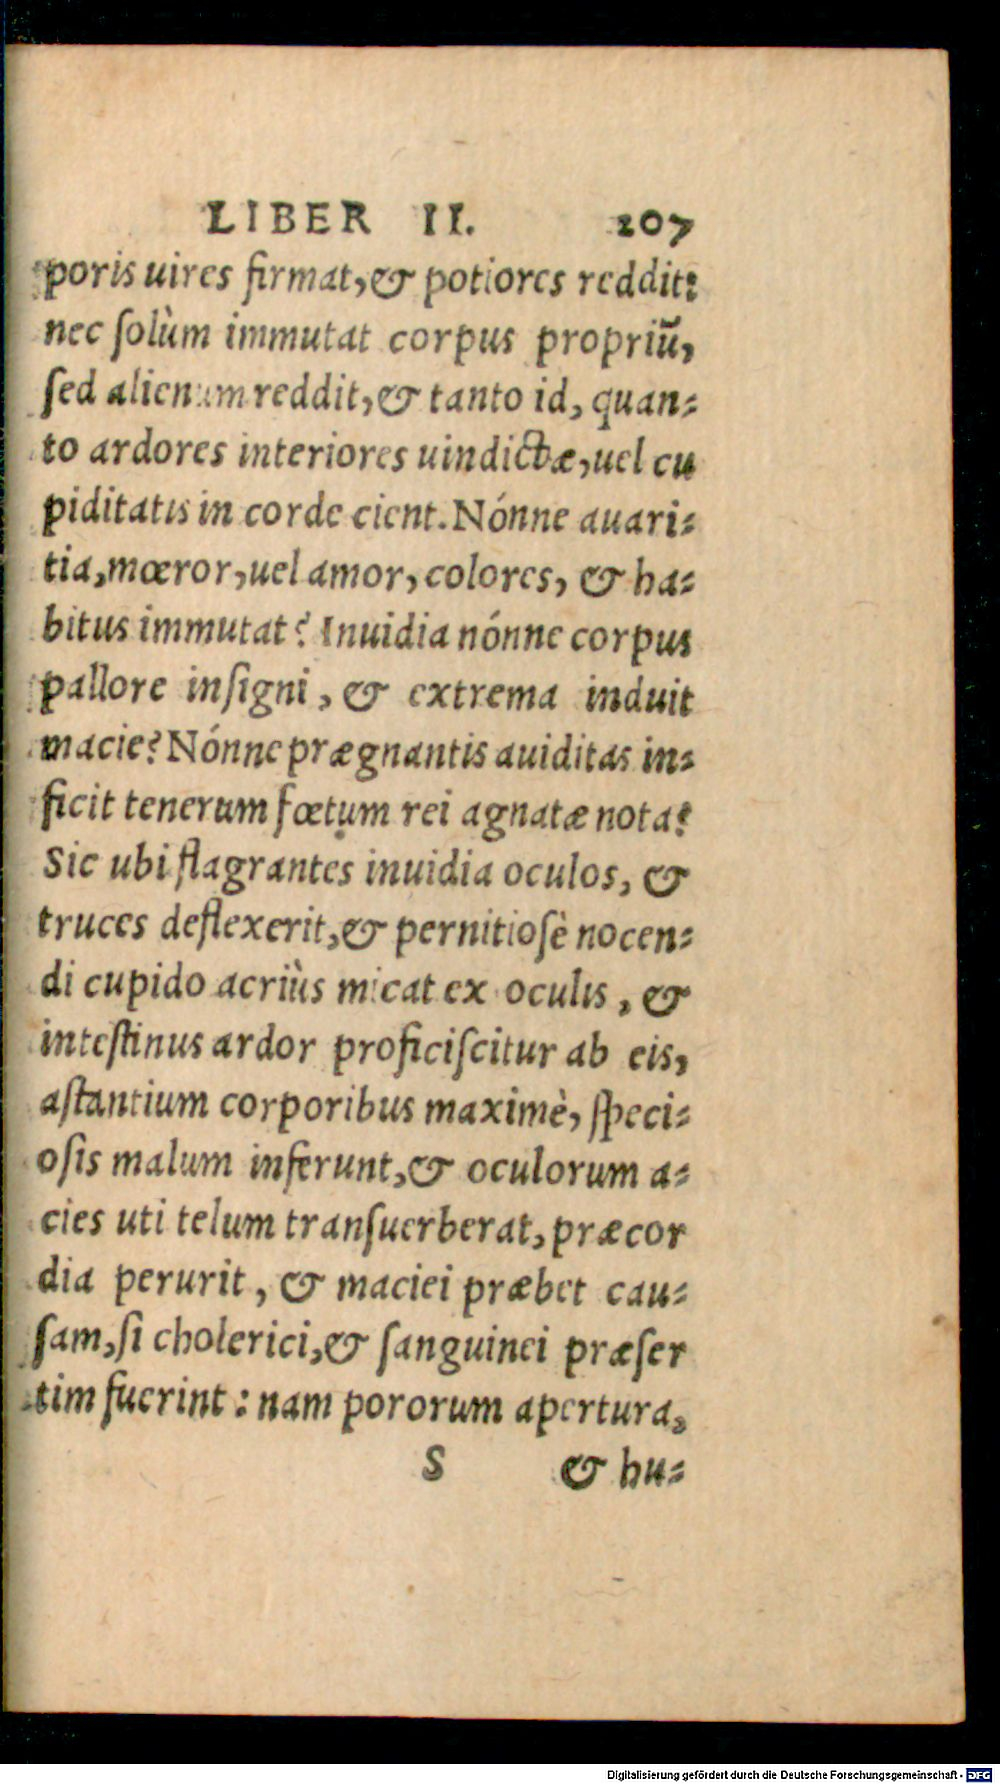 LIBER II. 207
poris uires firmat, & potiores reddit:
nec ſolùm immutat corpus propriū,
ſed alienum reddit, & tanto id, quan⸗
to ardores interiores uindictæ, uel cu
piditatis in corde cient. Nónne auari⸗
tia, mœror, uel amor, colores, & ha⸗
bitus immutat? Inuidia nónne corpus
pallore inſigni, & extrema induit
macie? Nónne prægnantis auiditas in⸗
ficit tenerum fœtum rei agnatæ nota?
Sic ubi flagrantes inuidia oculos, &
truces deflexerit, & pernitioſè nocen⸗
di cupido acriùs micat ex oculis, &
inteſtinus ardor proficiſcitur ab eis,
aſtantium corporibus maximè, ſpeci⸗
oſis malum inferunt, & oculorum a⸗
cies uti telum tranſuerberat, præcor
dia perurit, & maciei præbet cau⸗
ſam, ſi cholerici, & ſanguinei præſer
tim fuerint: nam pororum apertura,
S & hu⸗
Digitalisierung gefördert durch die Deutsche Forschungsgemeinschaft - DFG